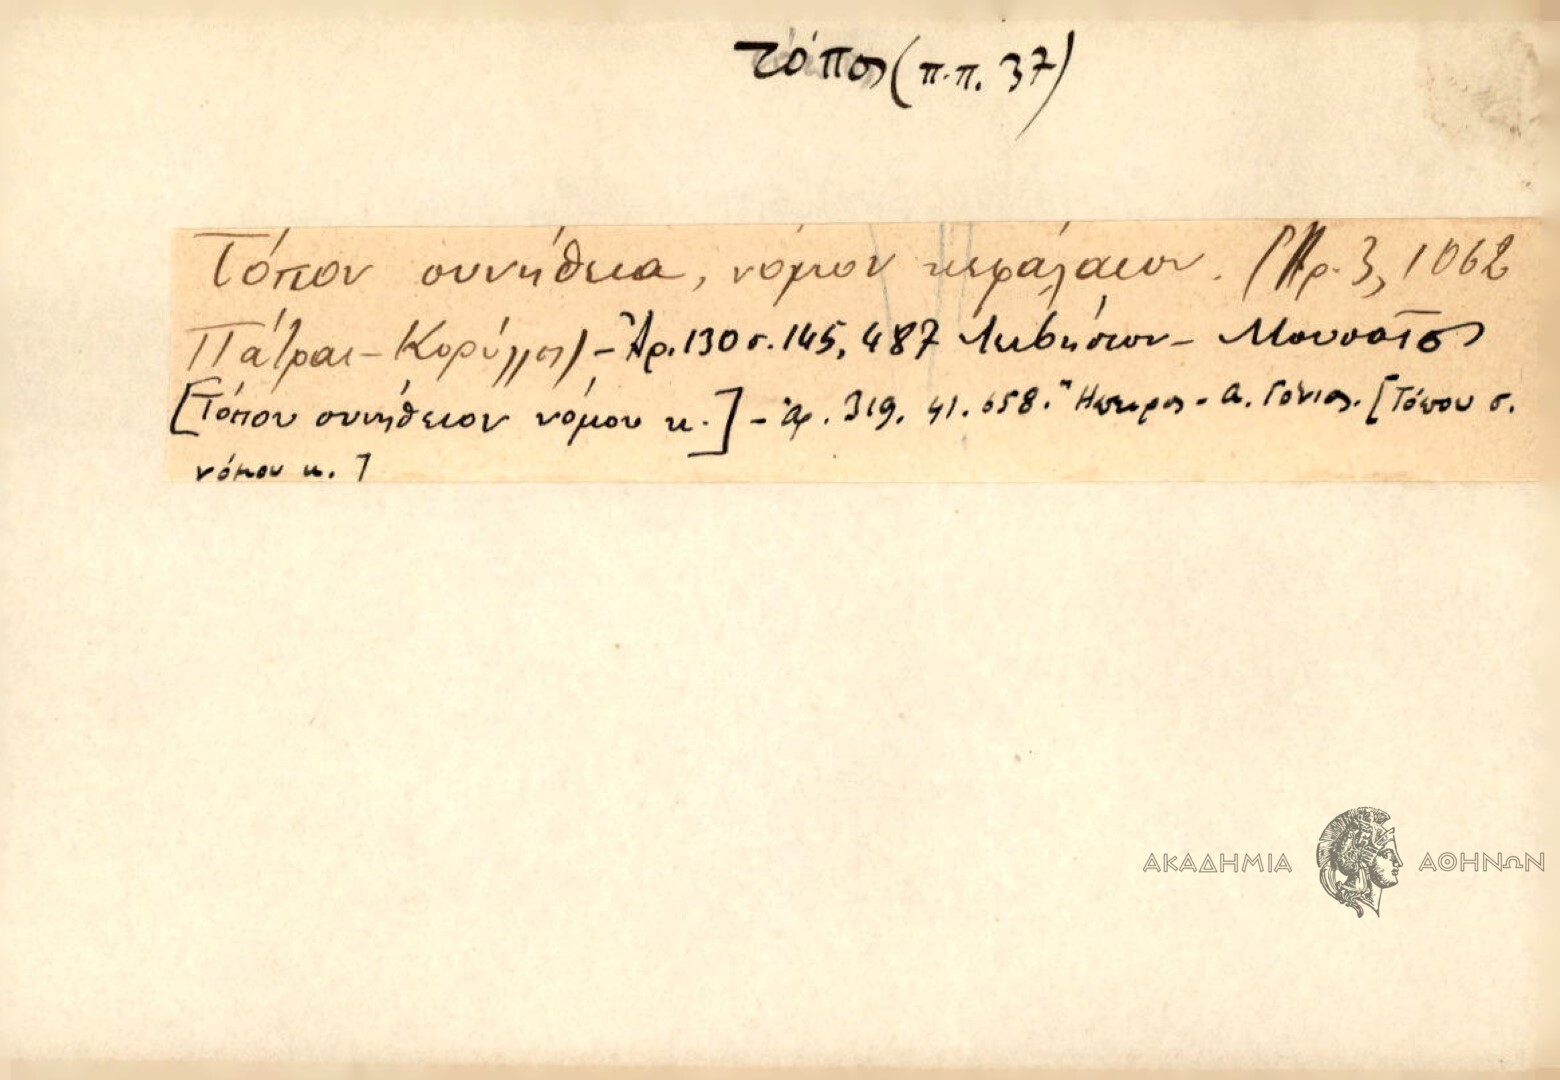 τόπος (π.π. 37)
Τόπου συνήθεια, νόμου κεφάλαιον. (Αρ. 3, 1062
Πάτραι – Κορύλλος) – Ἀρ. 130 σ. 145, 487 – Μουσαῖος
[Τόπου συνήθειον νόμου κ.] – Ἀρ. 319. 41. 658. Ἤπειρος – Α. Γόνιος. [Τόπου σ.
νόμου κ.]
ΑΚΑΔΗΜΙΑ ΑΘΗΝΩΝ